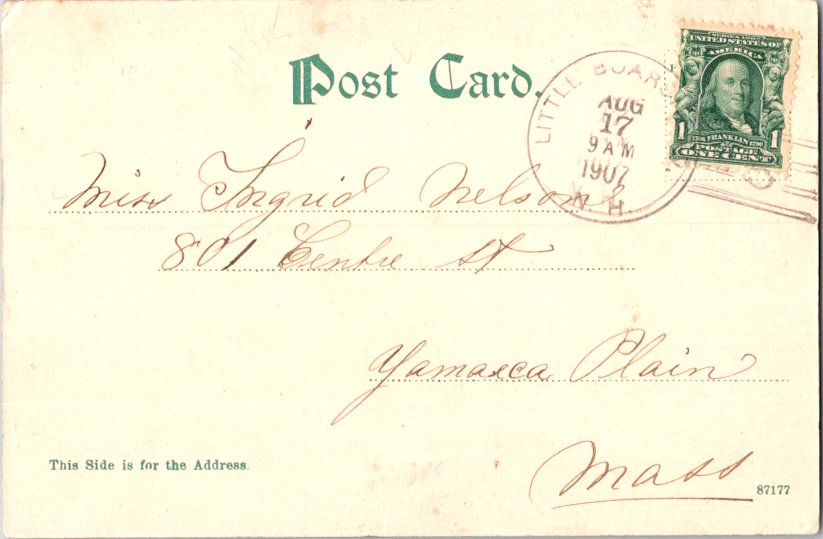 Post Card.
LITTLE BOARS
AUG
17
9 AM
1907
N.H.
SERIES 1902
UNITED STATES OF
AMERICA
1 1706 FRANKLIN 1790 1
POSTAGE
ONE CENT
Miss Ingrid Nelson
801 Centre St
Yamaeca Plain
Mass
This Side is for the Address.
87177